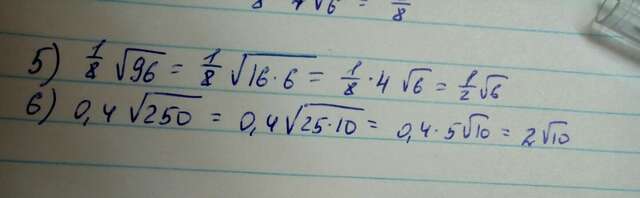 8 √6 = 1/8
5) 1/8 √96 = 1/8 √16·6 = 1/8 · 4 √6 = 1/2 √6
6) 0,4 √250 = 0,4 √25·10 = 0,4 · 5 √10 = 2 √10